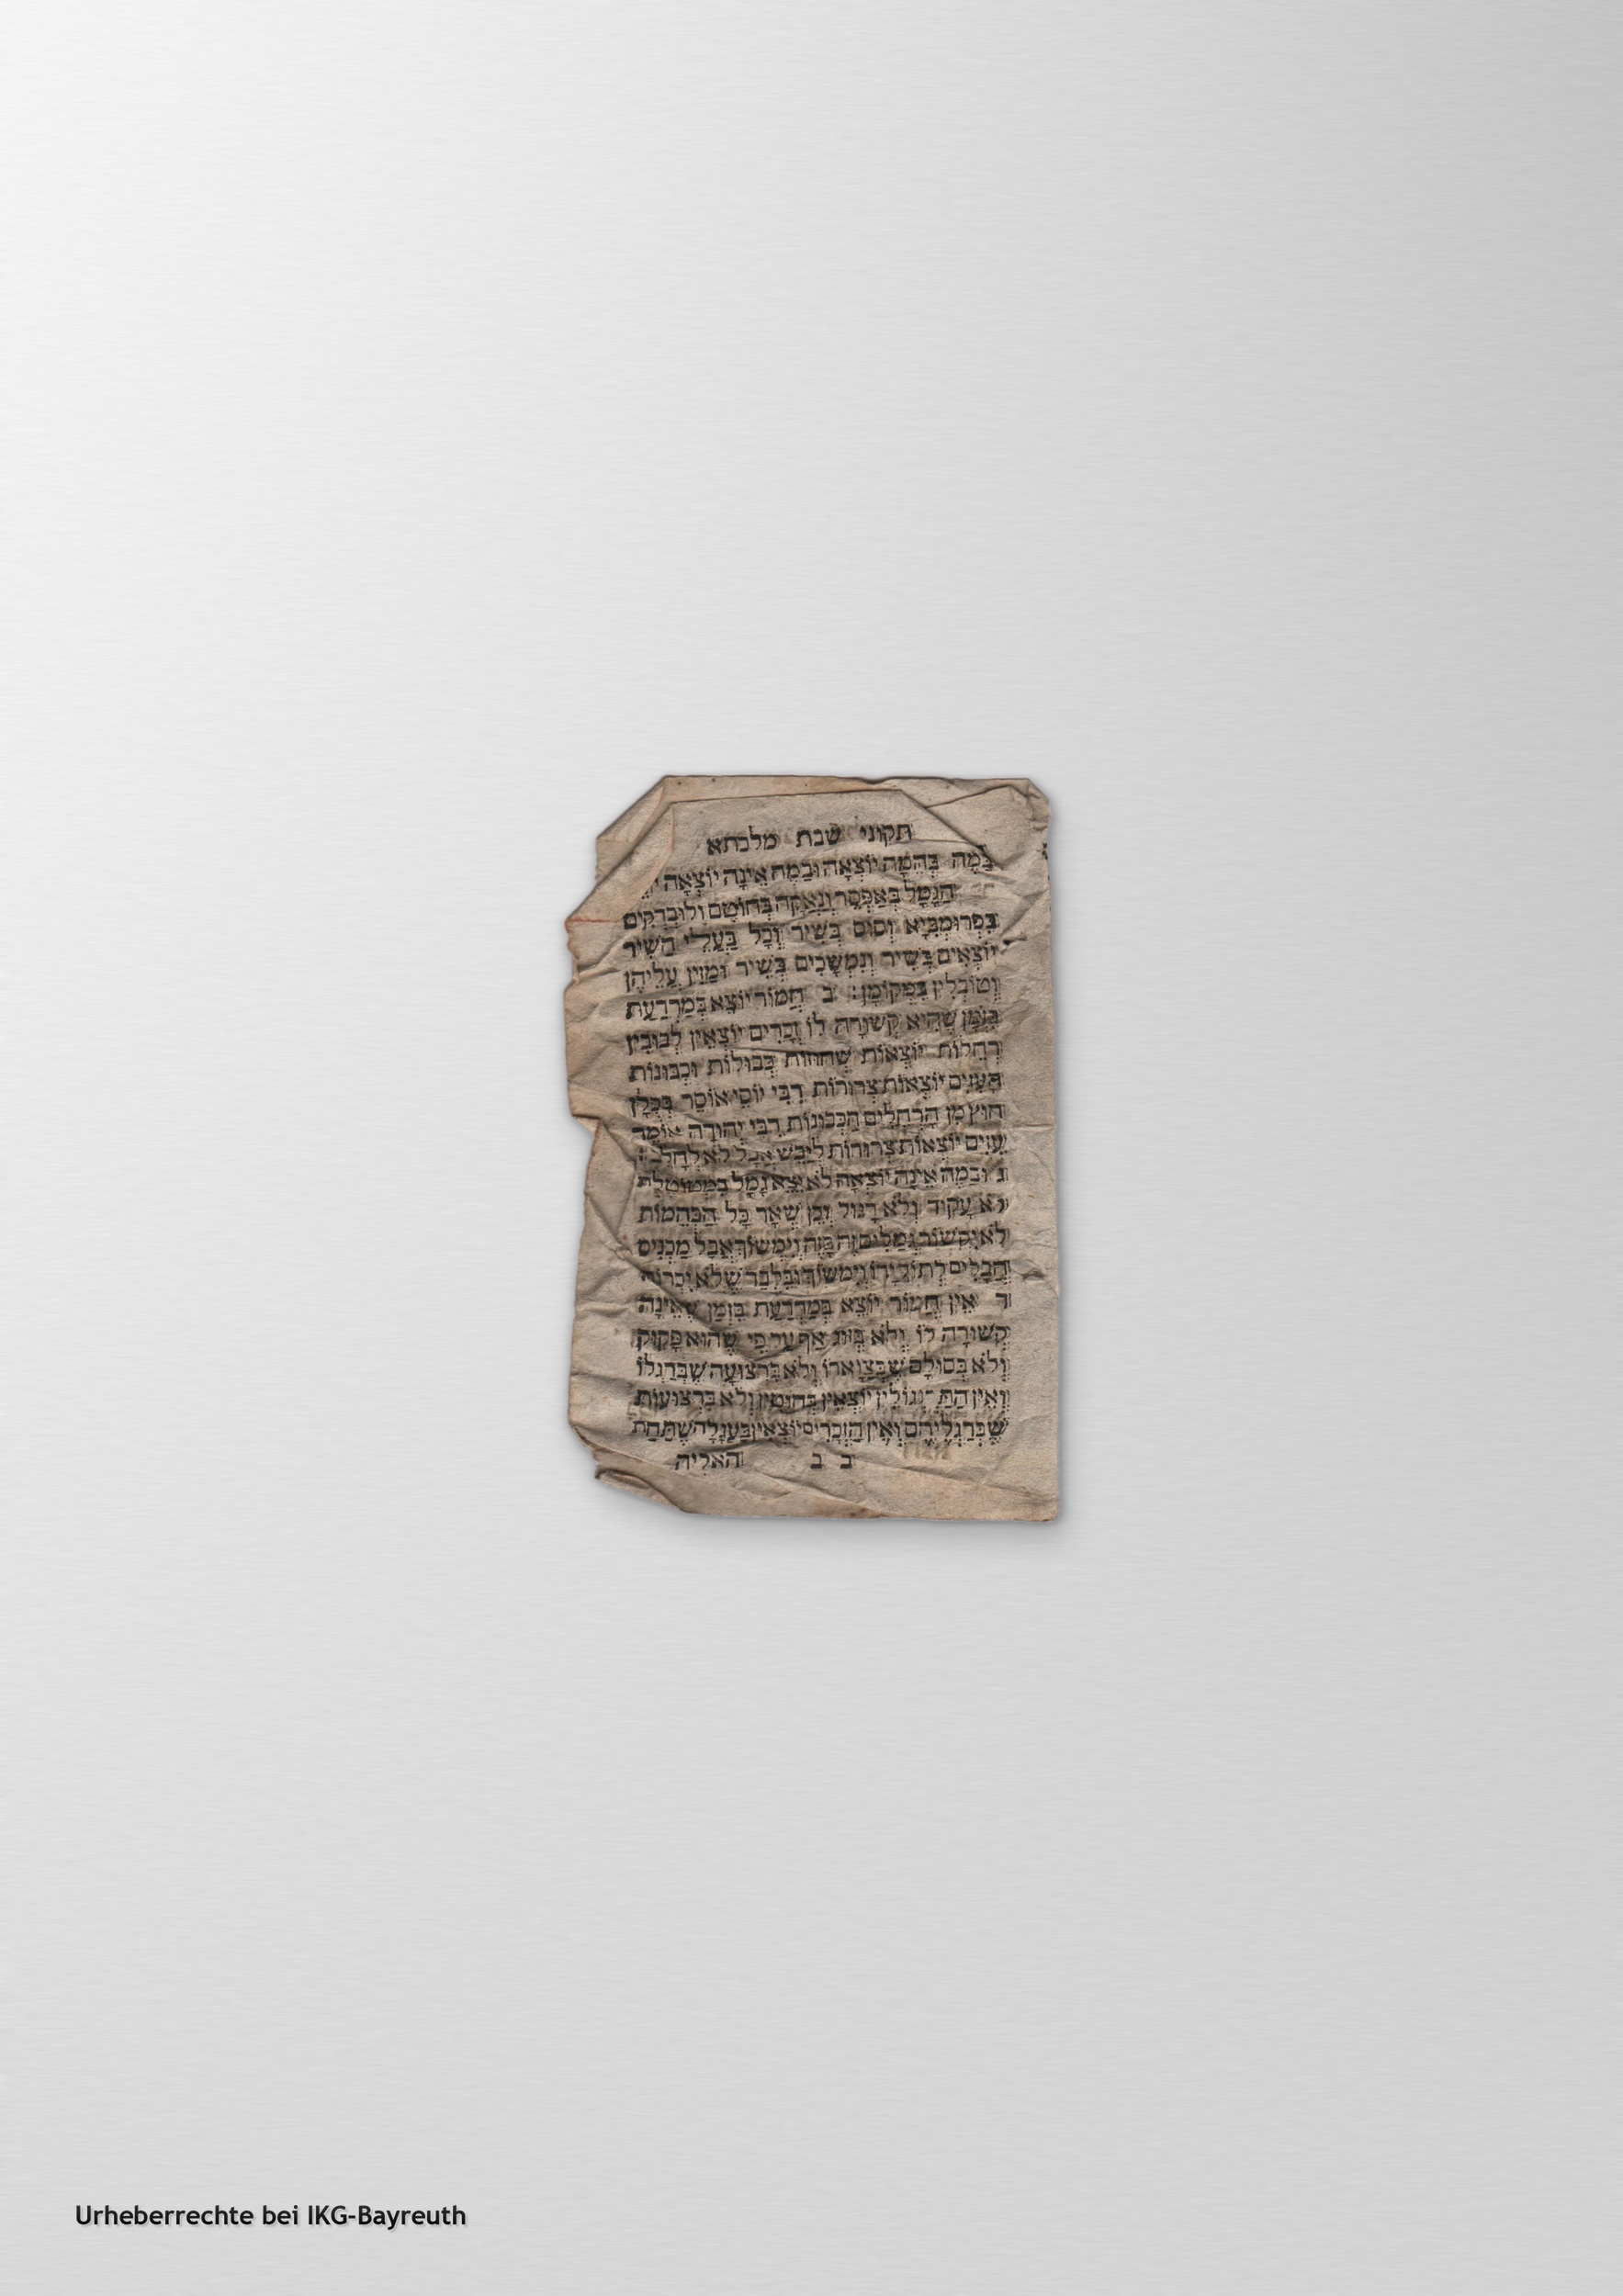 תקוני שבת מלכתא
בַּמֶּה בְּהֵמָה יוֹצְאָה וּבַמֶּה אֵינָהּ יוֹצְאָה
הַגָּמָל בְּאַפְסָר וְנָאקָה בְּחוֹטָם ולוּבְדְקִים
בִּפְרוּמְבִּיָא וְסוּס בְּשֵׁיר וְכָל בַּעֲלֵי הַשֵּׁיר
יוֹצְאִים בְּשֵׁיר וְנִמְשָׁכִים בְּשֵׁיר וּמַזִּין עֲלֵיהֶן
וְטוֹבְלִין בִּמְקוֹמָן: ב חֲמוֹר יוֹצֵא בְּמַרְדַּעַת
בִּזְמַן שֶׁהִיא קְשׁוּרָה לוֹ זְכָרִים יוֹצְאִין לְבוּבִין
רְחֵלוֹת יוֹצְאוֹת שְׁחוּזוֹת כְּבוּלוֹת וּכְבוּנוֹת
הָעִזִּים יוֹצְאוֹת צְרוּרוֹת רַבִּי יוֹסֵי אוֹסֵר בְּכֻלָּן
חוּץ מִן הָרְחֵלִים הַכְּבוּנוֹת רַבִּי יְהוּדָה אוֹמֵר
עִזִּים יוֹצְאוֹת צְרוּרוֹת לְיַבֵּשׁ אֲבָל לֹא לְחָלָב:
ג וּבַמֶּה אֵינָהּ יוֹצְאָה לֹא יֵצֵא גָמָל בִּמְטוּטֶלֶת
לֹא עָקוּד וְלֹא רָגוּל וְכֵן שְׁאָר כָּל הַבְּהֵמוֹת
לֹא יִקְשׁוֹר גְּמַלִּים זֶה בָּזֶה וְיִמְשׁוֹךְ אֲבָל מַכְנִיס
חֲבָלִים לְתוֹךְ יָדוֹ וְיִמְשׁוֹךְ וּבִלְבַד שֶׁלֹּא יִכְרוֹךְ
ד אֵין חֲמוֹר יוֹצֵא בְּמַרְדַּעַת בִּזְמַן שֶׁאֵינָהּ
קְשׁוּרָה לוֹ וְלֹא בְּזוּג אַף עַל פִּי שֶׁהוּא פָּקוּק
וְלֹא בְּסוּלָּם שֶׁבְּצַוָּארוֹ וְלֹא בִּרְצוּעָה שֶׁבְּרַגְלוֹ
וְאֵין הַתַּרְנְגוֹלִין יוֹצְאִין בְּחוּטִין וְלֹא בִּרְצוּעוֹת
שֶׁבְּרַגְלֵיהֶם וְאֵין הַזְּכָרִים יוֹצְאִין בַּעֲגָלָה שֶׁתַּחַת
ב ב האליה
Urheberrechte bei IKG-Bayreuth